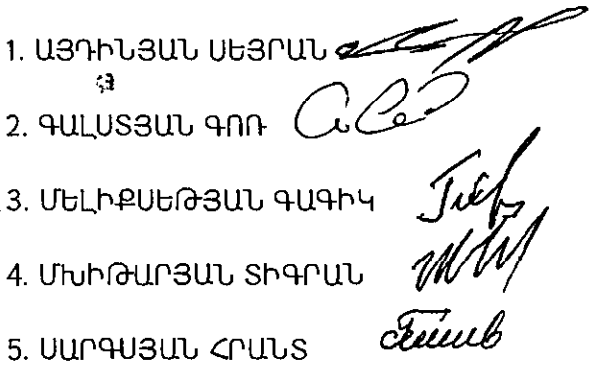 1. ԱՅԴԻՆՅԱՆ ՍԵՅՐԱՆ
2. ԳԱԼՍՏՅԱՆ ԳՈՌ
3. ՄԵԼԻՔՍԵԹՅԱՆ ԳԱԳԻԿ
4. ՄԽԻԹԱՐՅԱՆ ՏԻԳՐԱՆ
5. ՍԱՐԳՍՅԱՆ ՀՐԱՆՏ